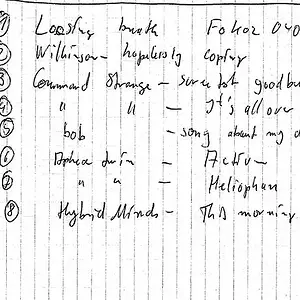 ① Loosing breath Fokoz 040
② Wilkinson - hopelessly coping
③ Command Strange - sweetest goodbu
④ " " - It's all over
⑤ bob - song about my d
⑥ Aphex twin - Actiu -
⑦ " " - Heliophan
⑧ Hybrid Minds - This morning